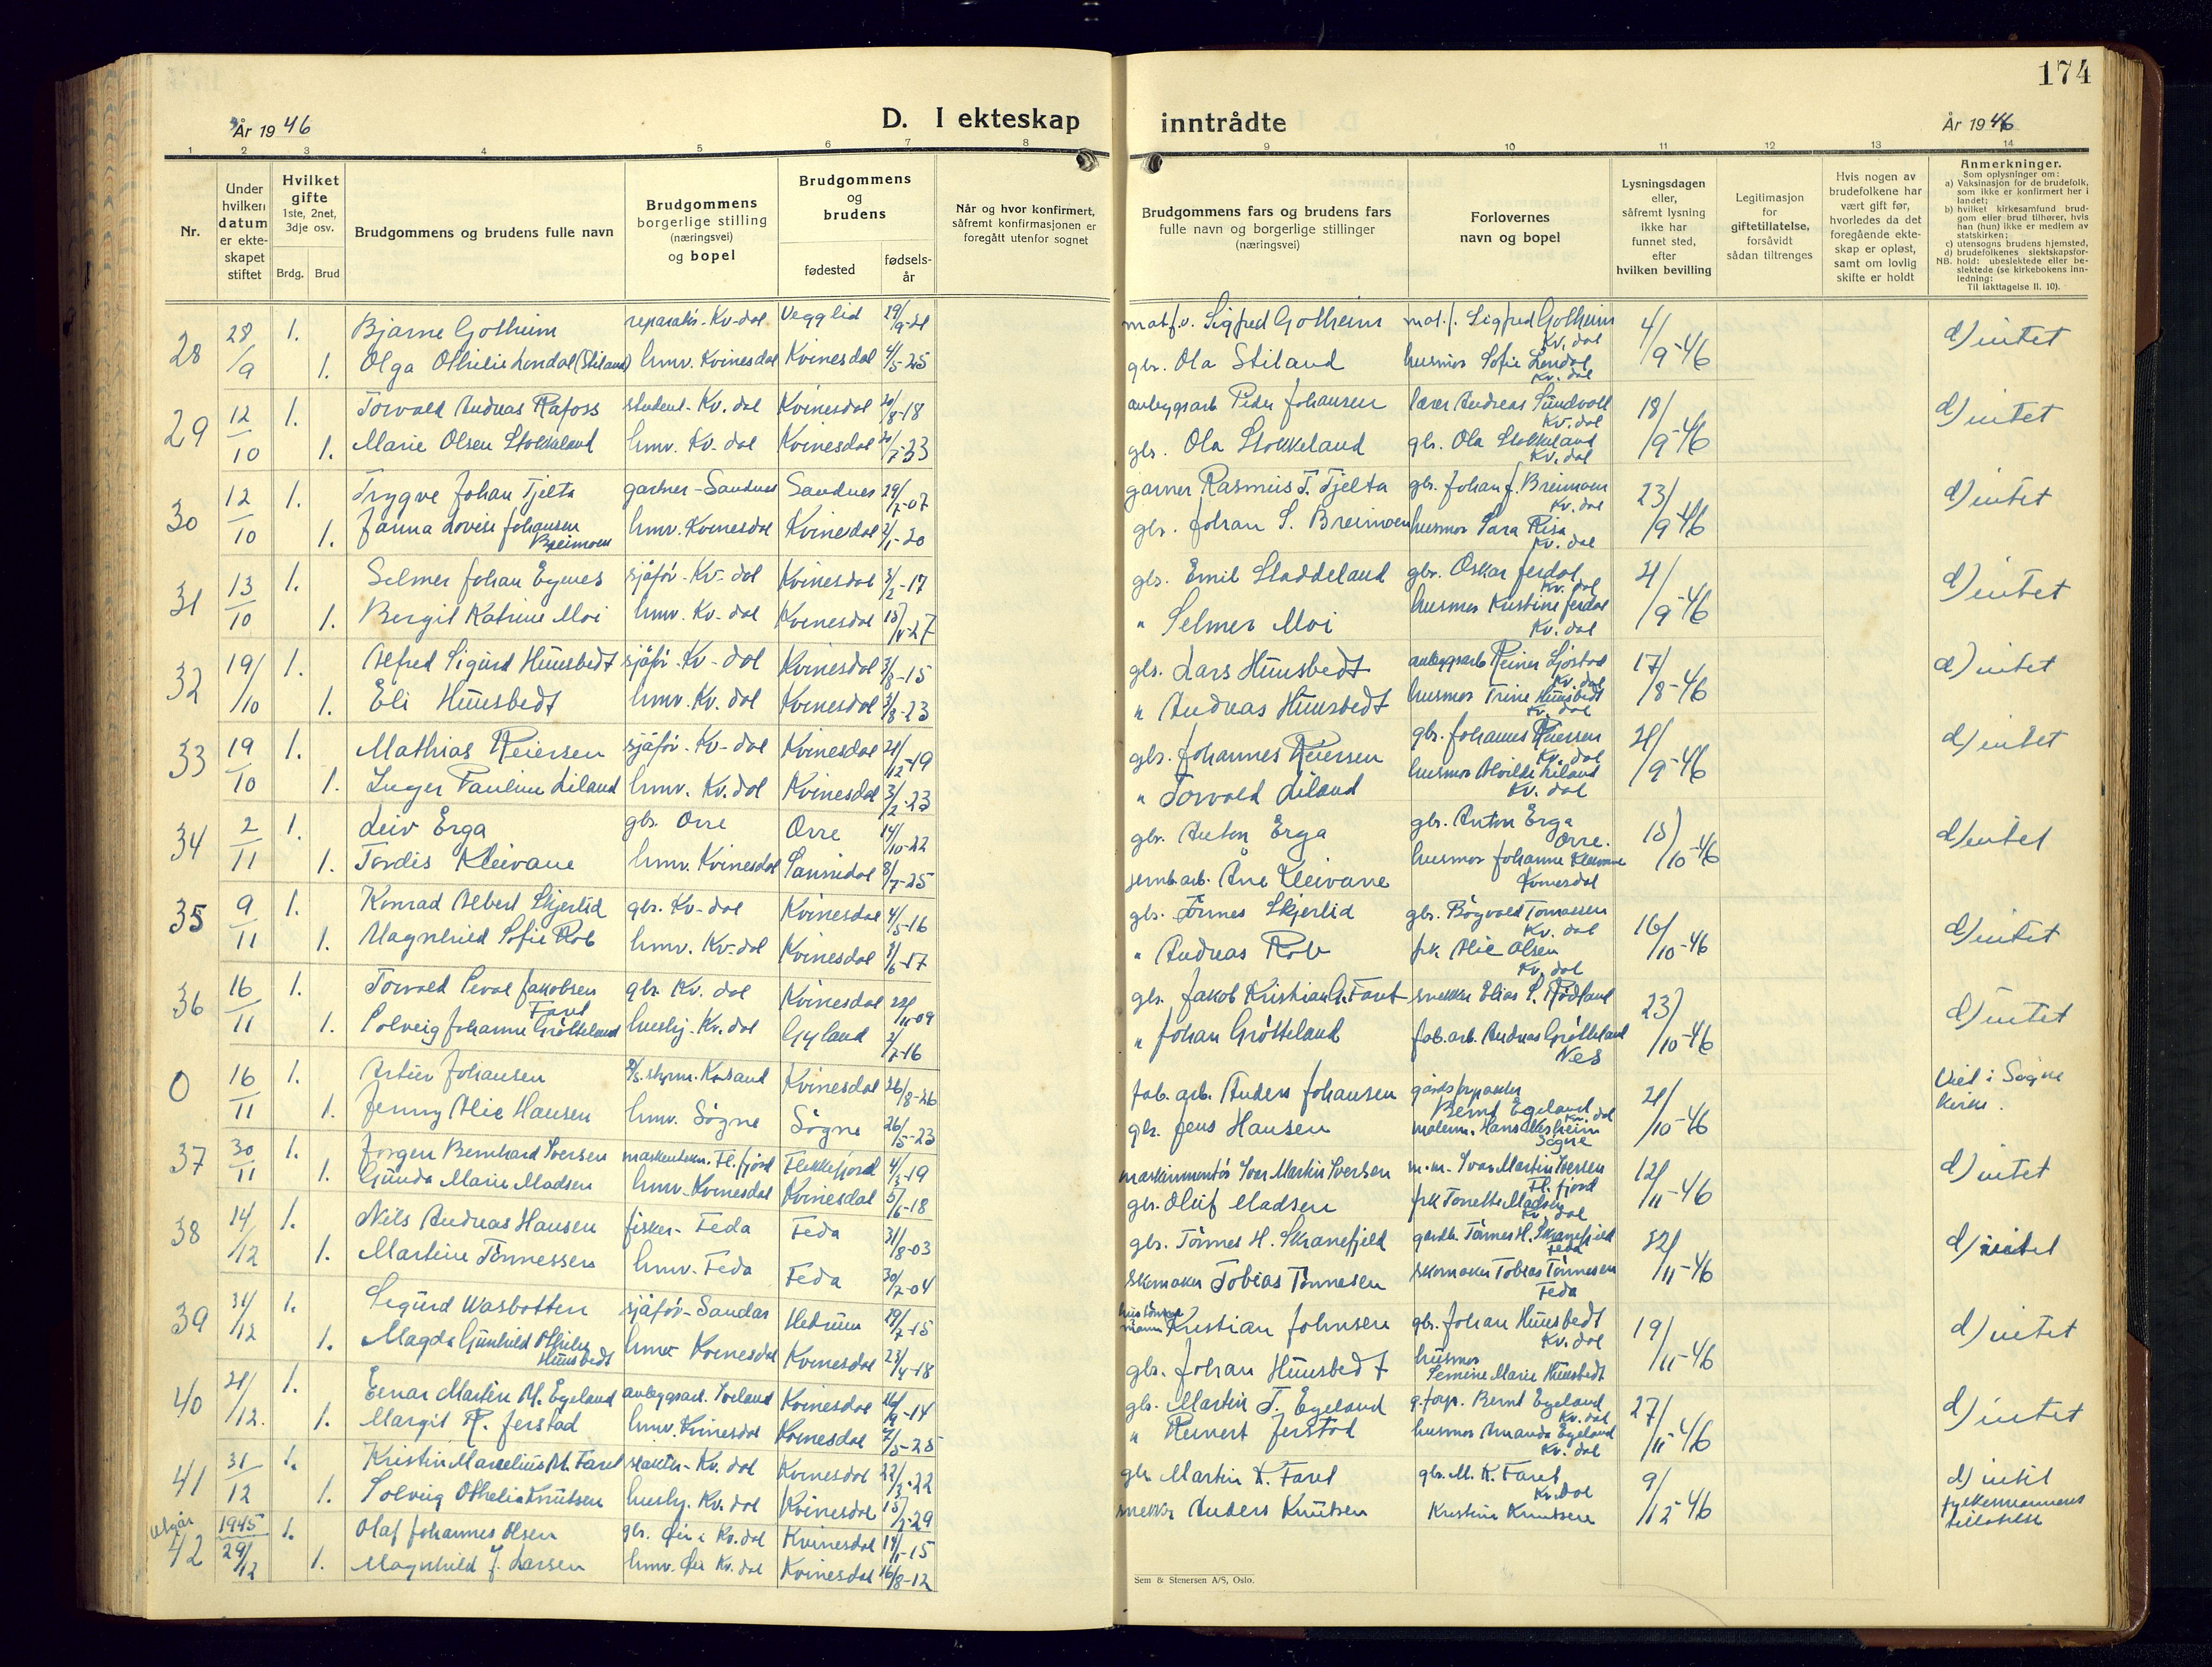 174
År 1946
D. I ekteskap inntrådte
År 1946
1 2 3 4 5 6 7 8 9 10 11 12 13 14
Nr.
Under hvilken datum er ekteskapet stiftet
Hvilket gifte 1ste, 2net, 3dje osv.
Brdg. Brud
Brudgommens og brudens fulle navn
Brudgommens borgerlige stilling (næringsvei) og bopel
Brudgommens og brudens
fødested
fødselsår
Når og hvor konfirmert, såfremt konfirmasjonen er foregått utenfor sognet
Brudgommens fars og brudens fars fulle navn og borgerlige stillinger (næringsvei)
Forlovernes navn og bopel
Lysningsdagen eller, såfremt lysning ikke har funnet sted, efter hvilken bevilling
Legitimasjon for giftetillatelse, forsåvidt sådan tiltrenges
Hvis nogen av brudefolkene har vært gift før, hvorledes da det foregående ekteskap er opløst, samt om lovlig skifte er holdt
Anmerkninger.
Som oplysninger om:
a) Vaksinasjon for de brudefolk, som ikke er konfirmert her i landet;
b) hvilket kirkesamfund brudgom eller brud tilhører, hvis han (hun) ikke er medlem av statskirken;
c) utensogns brudens hjemsted,
d) brudefolkenes slektskapsforhold: ubeslektede eller beslektede (se kirkebokens innledning:
NB. Til iakttagelse II. 10).
28 28/9 1. Bjarne Gotheim Kv-dal Vegglid Sigfred Gotheim Sigfred Gotheim Kv. dal 4/9-46 d) intet
1. Olga Othilie Londal (Stiland) hmv. Kvinesdal Kvinesdal 4/5-25 gbr. Ola Stiland husmor Sofie Londal Kv. dal
29 12/10 1. Torvald Andreas Rafoss student - Kv. dal Kvinesdal anleggsarb. Peder Johansen lærer Andreas Sundvoll Kv. dal 18/9-46 d) intet
1. Marie Olsen Stokkeland hmv. Kv. dal Kvinesdal gbr. Ola Stokkeland gbr. Ola Stokkeland Kv. dal
30 12/10 1. Trygve Johan Tjelta gartner - Sandnes Sandnes garner Rasmus T. Tjelta gbr. Johan J. Breimoen Kv. dal 23/9-46 d) intet
1. Janna Lovise Johansen Breimoen hmv. Kvinesdal Kvinesdal gbr. Johan S. Breimoen husmor Sara Risa Kv. dal
31 13/10 1. Selmer Johan Egenes sjåför - Kv-dal Kvinesdal gbr. Emil Staddeland gbr. Oskar Jerdal Kv. dal 21/9-46 d) intet
1. Bergit Katrine Moi hmv. Kv-dal Kvinesdal " Selmer Moi husmor Kristine Jerdal Kv. dal
32 19/10 1. Alfred Sigurd Hunsbedt sjåför - Kv-dal Kvinesdal gbr. Lars Hunsbedt anleggsarb. Reiner Kv. dal 17/8-46 d) intet
1. Eli Hunsbedt hmv. Kv. dal Kvinesdal " Andreas Hunsbedt husmor Trine Hunsbedt Kv. dal
33 19/10 1. Mathias Reiersen sjåför - Kv-dal Kvinesdal 21/12-19 gbr. Johannes Reiersen gbr. Johannes Reiersen Kv. dal 21/9-46 d) intet
1. Inger Pauline Liland hmv. Kv. dal Kvinesdal 3/2-23 " Torvald Liland husmor Alvilde Liland Kv. dal
34 2/11 1. Leiv Erga gbr. Orre Orre 14/10-22 gbr. Anton Erga gbr. Anton Erga Orre. 15/10-46 d) intet
1. Tordis Kleivane hmv. Kvinesdal Sannidal 8/7-25 jernb.arb. Kleivane husmor Johanne Kleivane Kvinesdal
35 9/11 1. Konrad Albert Skjerlid gbr. Kv-dal Kvinesdal 4/5-16 gbr. Tönnes Skjerlid gbr. Bågvald Tomassen Kv. dal 16/10-46 d) intet
1. Magnhild Sofie Rob hmv. Kv-dal Kvinesdal " Andreas Rob frk. Alie Olsen Kv. dal
36 16/11 1. Torvald Peval Jakobsen Faret gbr. Kv. dal Kvinesdal gbr. Jakob Kristian Faret snekker Elias S. Rödland 23/10-46 d) intet
1. Solveig Johanne Grötteland hushj. Kv. dal Gyland " Johan Grötteland fab. arb. Andreas Grötteland Nes
0 16/11 1. Artur Johansen Kvinesdal 26/8-26 fab. arb. Anders Johansen Bernt Egeland Kv. dal 21/10-46 Viet i Søgne kirke.
1. Jenny Alie Hansen hmv. Søgne Søgne 26/5-23 gbr. Jens Hansen malerm. Hans Søgne
37 30/11 1. Jörgen Bernhard Iversen Fl. fjord Flekkefjord 4/3-19 maskinmontör Ivar Martin Iversen m.m. Ivar Martin Iversen Fl. fjord 12/11-46 d) intet
1. Gunda Marie Madsen hmv. Kvinesdal Kvinesdal gbr. Oluf Madsen frk Tonette Madsen Kv. dal
38 14/12 1. Nils Andreas Hansen fisker - Feda Feda 31/8-03 gbr. Tönnes H. Skranefjeld gardb. Tönnes H. Skranefjeld Feda 22/11-46 d) intet
1. Martine Tönnessen hmv. Feda Feda skomaker Tobias Tönnesen skomaker Tobias Tönnesen Feda
39 1. Sigurd Wasbotten sjåför - Sandar Hedrum 19/7-15 Kristian Johnsen gbr. Johan Hunsbedt Kv. dal 19/11-46 d) intet
1. Magda Gunhild Othilie Hunsbedt hmv Kvinesdal Kvinesdal 23/4-18 gbr. Johan Hunsbedt husmor Semine Marie Hunsbedt
40 21/12. 1. Einar Martin M. Egeland anleggsarb. Kvinesdal 16/9-14 gbr. Martin T. Egeland g.forp. Bernt Egeland Kv. dal 27/11-46 d) intet
1. Margit R. Jerstad hmv. Kvinesdal Kvinesdal " Reinert Jerstad husmor Amanda Egeland Kv. dal
41 31/12 1. Kristin Marcelius M. Faret slakter - Kv. dal Kvinesdal 22/3-22 gbr Martin K. Faret gbr. M. K. Faret Kv. dal 9/12-46 d) intet
1. Solveig Othelie Knutsen hushj. Kv. dal Kvinesdal snekker Anders Knutsen Kristine Knutsen fylkesmannens tillatelse
utgår 42 1945 29/12 1. Olaf Johannes Olsen gbr. Kv. dal Kvinesdal
1. Magnhild J. Larsen hmv. Kv. dal Kvinesdal 16/8-12
Sem & Stenersen A/S, Oslo.